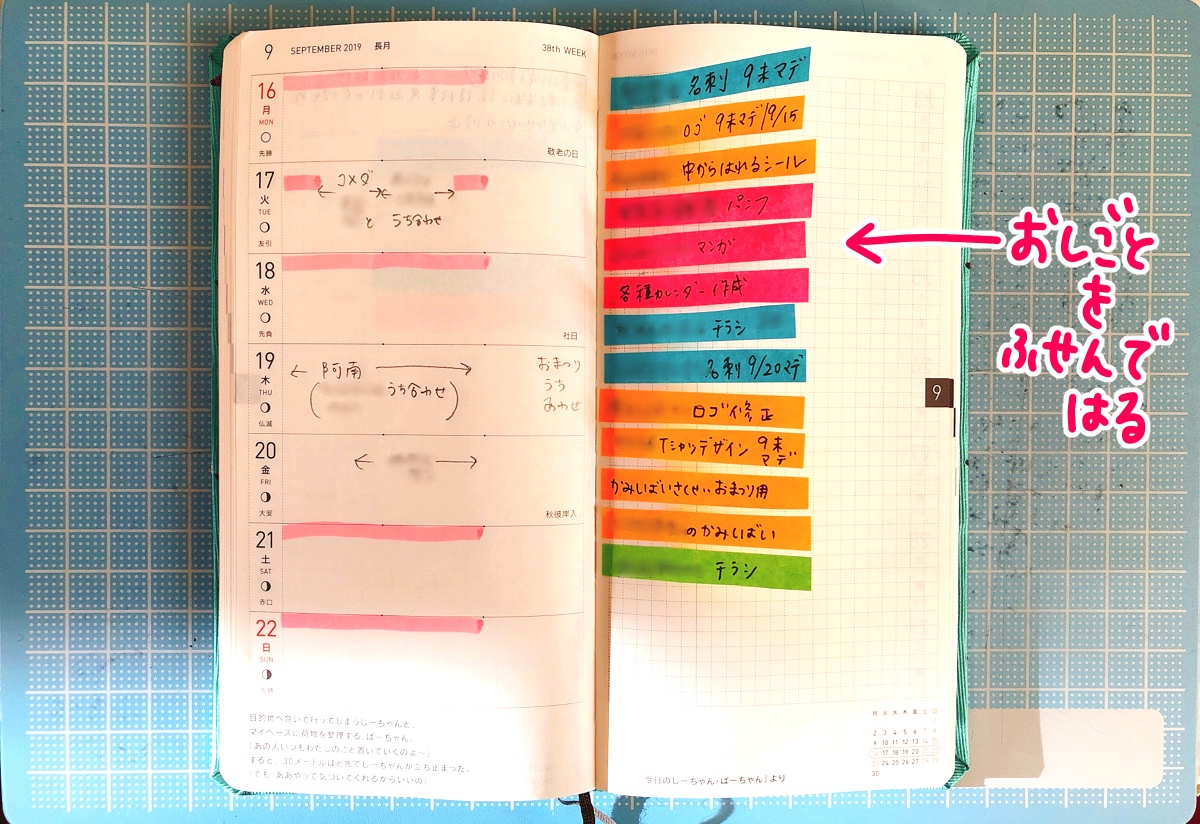 9 SEPTEMBER 2019 長月 38th WEEK
16
月
MON
先勝
敬老の日
17
火
TUE
友引
コメダ
と うち合わせ
18
水
WED
先負
社日
19
木
THU
仏滅
阿南
うち合わせ
おまつり
うち
あわせ
20
金
FRI
大安
秋彼岸入
21
土
SAT
赤口
22
日
SUN
目的地へ急いで行ってしまうじーちゃんと、
マイペースに荷物を整理する、ばーちゃん。
「あの人いつもわたしのこと置いていくのよ〜」
すると、30メートルほど先でじーちゃんが立ち止まった。
「でも、ああやって気づいてくれるからいいの」
名刺 9末マデ
ロゴ 9末マデ/9/15
中からはれるシール
パンフ
マンガ
各種カレンダー作成
チラシ
名刺 9/20マデ
ロゴ修正
Tシャツデザイン 9末
マデ
かみしばいさくせい おまつり用
のかみしばい
チラシ
9
月 火 水 木 金 土 日
1
2 3 4 5 6 7 8
9 10 11 12 13 14 15
16 17 18 19 20 21 22
23 24 25 26 27 28 29
30
今日のじーちゃん・ばーちゃん』より
おしごと
を
ふせんで
はる